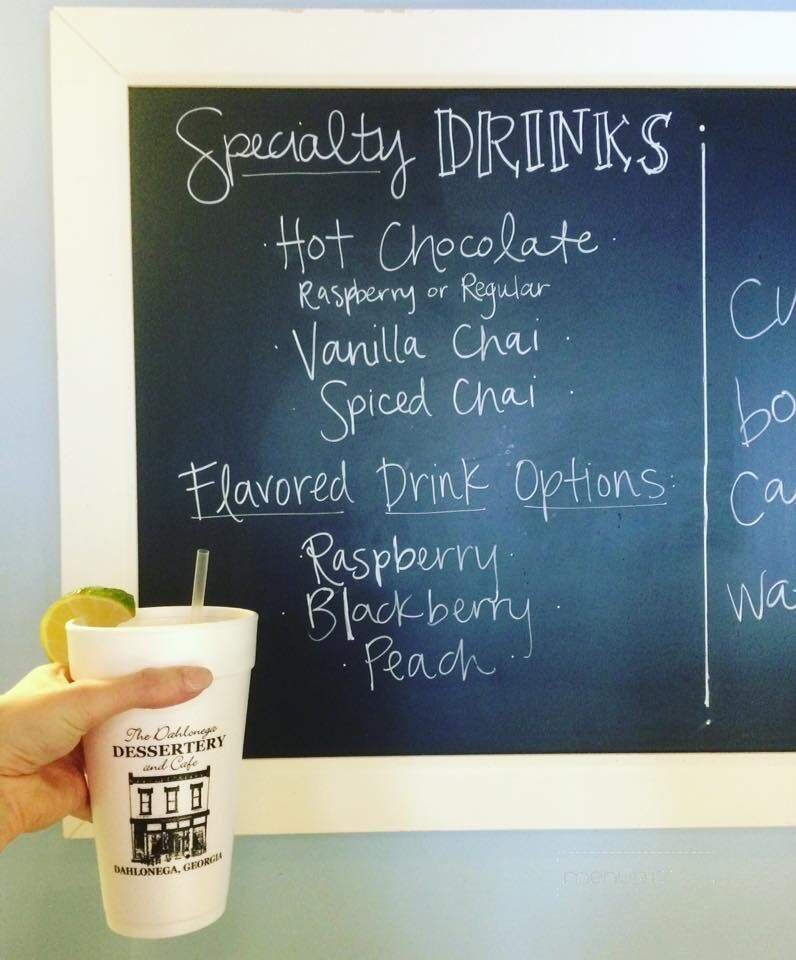 Specialty DRINKS
Hot Chocolate
Raspberry or Regular
Vanilla Chai
Spiced Chai
Flavored Drink Options:
Raspberry
Blackberry
Peach
Cu
bo
Ca
Wa
The Dahlonega
DESSERTERY
and Cafe
DAHLONEGA, GEORGIA